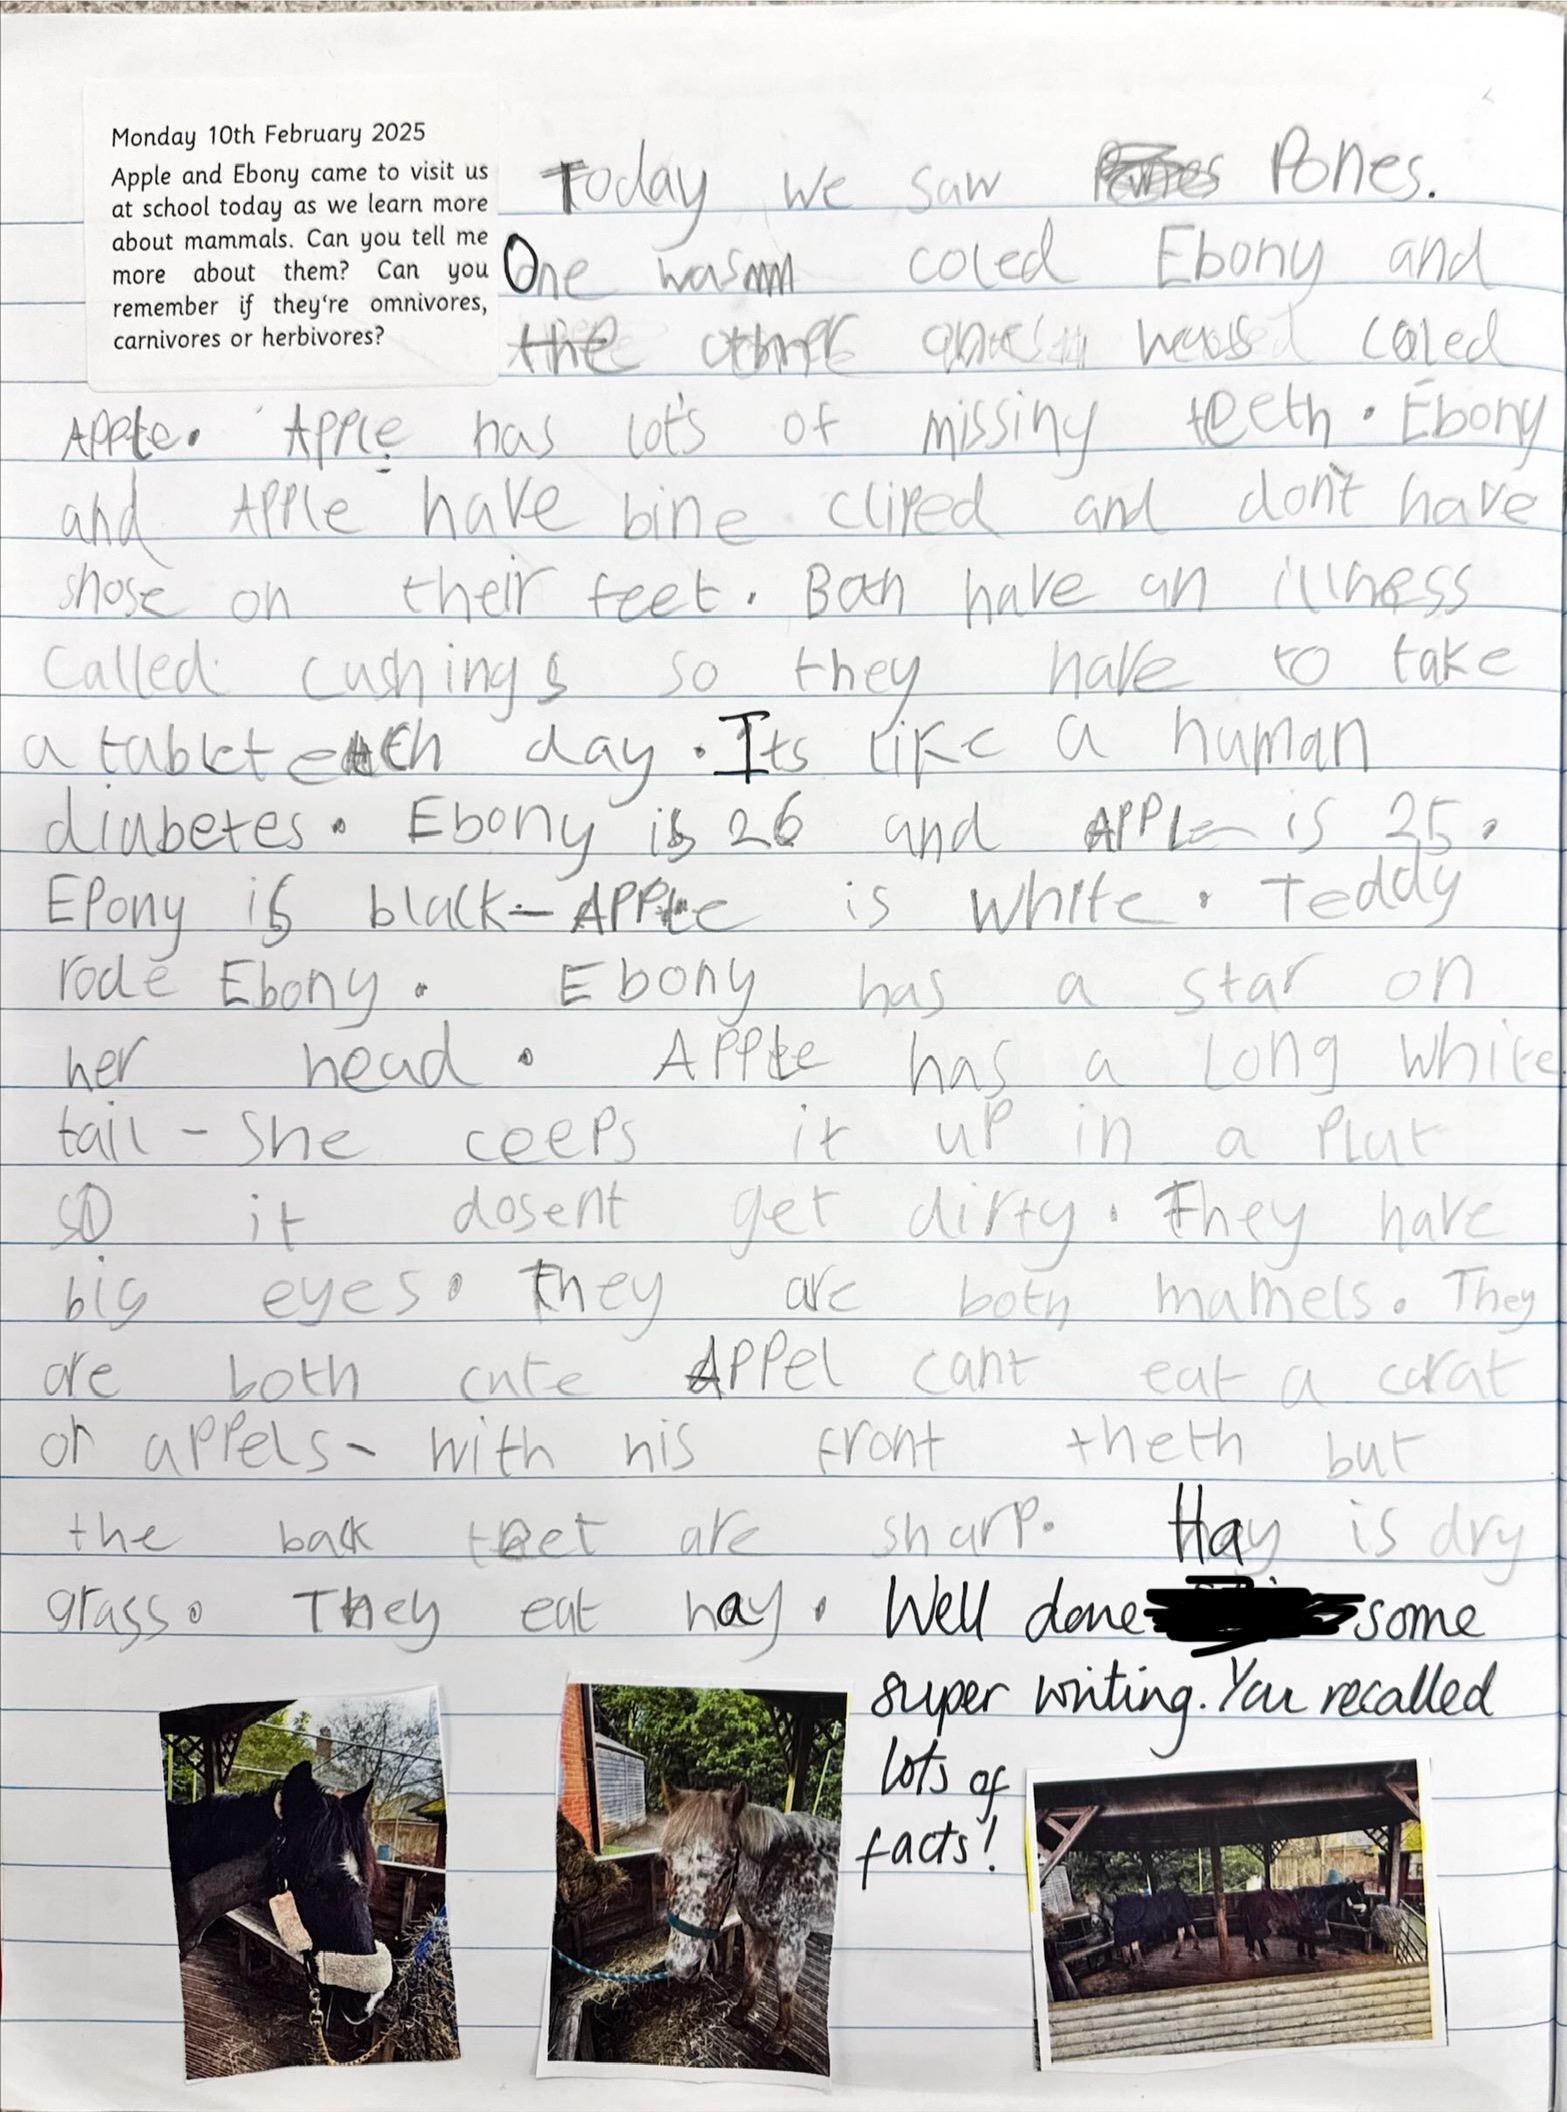 Monday 10th February 2025
Apple and Ebony came to visit us
at school today as we learn more
about mammals. Can you tell me
more about them? Can you
remember if they're omnivores,
carnivores or herbivores?
Today we saw Pones.
One was coled Ebony and
the other one was coled
Apple. Apple has lot's of missing teeth. Ebony
and Apple have bine cliped and don't have
shose on their feet. Both have an illness
called cushings so they have to take
a tablet each day. Its like a human
diabetes. Ebony is 26 and Apple is 25.
Epony is black - Apple is white. Teddy
rode Ebony. Ebony has a star on
her head. Apple has a long white
tail - she ceeps it up in a plat
so it dosent get dirty. They have
big eyes. they are both mamels. They
are both cute Appel cant eat a carat
or appels - with his front theth but
the back teet are sharp. Hay is dry
grass. They eat hay. Well done some
super writing. You recalled
lots of
facts!